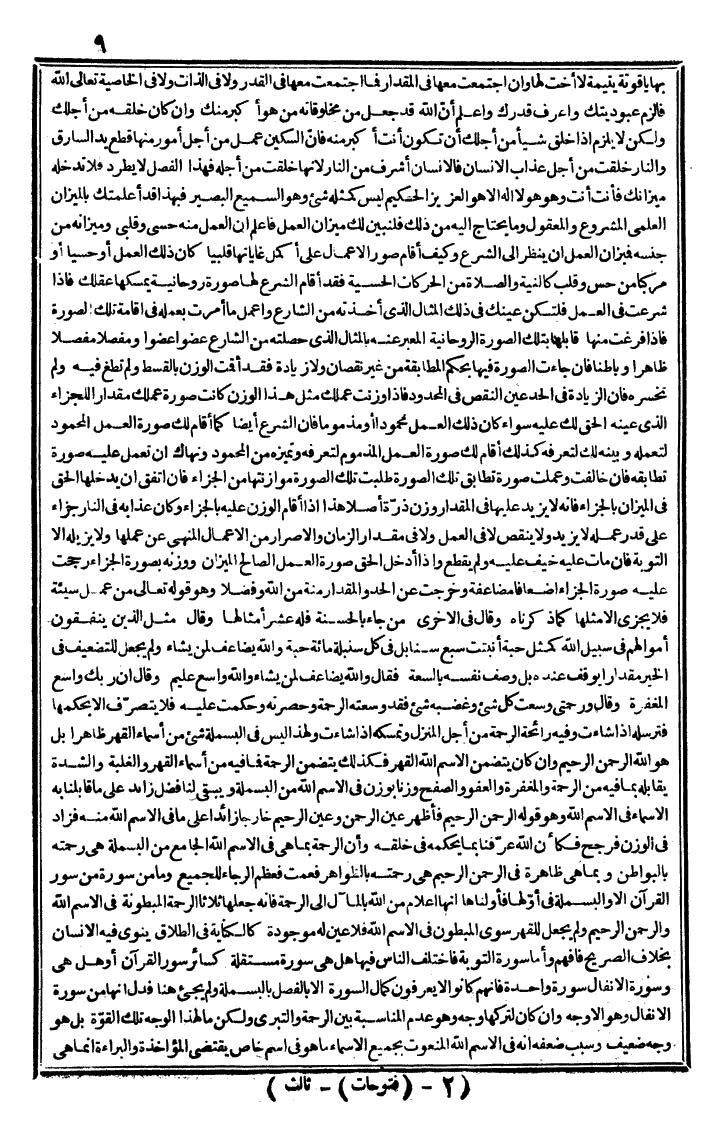 ٩
بها ياقوتة يتيمة لا أخت لها وان اجتمعت معها فى المقدار فما اجتمعت معها فى القدر ولا فى الذات ولا فى الخاصية تعالى الله
فالزم عبوديتك واعرف قدرك واعلم أنّ الله قد جعل من مخلوقاته من هو أكبر منك وان كان خلقه من أجلك
ولكن لا يلزم اذا خلق شيأ من أجلك أن تكون أنت أكبر منه فانّ السكين عمل من أجل أمور منها قطع يد السارق
والنار خلقت من أجل عذاب الانسان فالانسان أشرف من النار لانها خلقت من أجله فهذا الفصل لا يطرد فلا تدخله
ميزانك فأنت أنت وهو هو لا اله الا هو العزيز الحكيم ليس كمثله شئ وهو السميع البصير فبهذا قد أعلمتك بالميزان
العلمى المشروع والمعقول وما يحتاج اليه من ذلك فلنبين لك ميزان العمل فاعلم ان العمل منه حسى وقلبى وميزانه من
جنسه فميزان العمل ان ينظر الى الشرع وكيف أقام صور الاعمال على أكمل غاياتها قلبيا كان ذلك العمل أو حسيا أو
مركبا من حس وقلب كالنية والصلاة من الحركات الحسية فقد أقام الشرع لها صورة روحانية يمسكها عقلك فاذا
شرعت فى العمل فلتكن عينك فى ذلك المثال الذى أخذته من الشارع واعمل ما أمرت بعمله فى اقامة تلك الصورة
فاذا فرغت منها قابلها بتلك الصورة الروحانية المعبر عنه بالمثال الذى حصلته من الشارع عضوا عضوا ومفصلا مفصلا
ظاهرا وباطنا فان جاءت الصورة فيها بحكم المطابقة من غير نقصان ولا زيادة فقد أقت الوزن بالقسط ولم تطغ فيه ولم
تخسره فان الزيادة فى الحد عين النقص فى المحدود فاذا وزنت عملك مثل هذا الوزن كانت صورة عملك مقدار اللجزاء
الذى عينه الحق لك عليه سواء كان ذلك العمل محمودا أو مذموما فان الشرع أيضا كما أقام لك صورة العمل المحمود
لتعمله وبينه لك لتعرفه كذلك أقام لك صورة العمل المذموم لتعرفه وتميزه من المحمود ونهاك ان تعمل عليه صورة
تطابقه فان خالفت وعملت صورة تطابق تلك الصورة طلبت تلك الصورة موازنتها من الجزاء فان اتفق ان يدخلها الحق
فى الميزان بالجزاء فانه لا يزيد عليها فى المقدار وزن ذرّة أصلا هذا اذا أقام الوزن عليه بالجزاء وكان عذابه فى النار جزاء
على قدر عمله لا يزيد ولا ينقص لا فى العمل ولا فى مقدار الزمان والاصرار من الاعمال المنهى عن عملها ولا يزيله الا
التوبة فان مات عليه خيف عليه ولم يقطع واذا أدخل الحق صورة العمل الصالح الميزان ووزنه بصورة الجزاء رجحت
عليه صورة الجزاء اضعافا مضاعفة وخرجت عن الحد والمقدار منة من الله وفضلا وهو قوله تعالى من عمل سيئة
فلا يجزى الا مثلها كماذ كرناه وقال فى الاخرى من جاء بالحسنة فله عشر أمثالها وقال مثل الذين ينفقون
أموالهم فى سبيل الله كمثل حبة أنبتت سبع سنابل فى كل سنبلة مائة حبة والله يضاعف لمن يشاء ولم يجعل للتضعيف فى
الخير مقدارا يوقف عنده بل وصف نفسه بالسعة فقال والله يضاعف لمن يشاء والله واسع عليم وقال ان ربك واسع
المغفرة وقال ورحمتى وسعت كل شئ وغضبه شئ فقد وسعته الرحمة وحصرته وحكمت عليه فلا يتصرّف الا بحكمها
فترسله اذا شاءت وفيه رائحة الرحمة من أجل المنزل وتمسكه اذا شاءت ولهذا ليس فى البسملة شئ من أسماء القهر ظاهرا بل
هو الله الرحمن الرحيم وان كان يتضمن الاسم الله القهر فكذلك يتضمن الرحمة فما فيه من أسماء القهر والغلبة والشدة
يقابله بما فيه من الرحمة والمغفرة والعفو والصفح وزنا بوزن فى الاسم الله من البسملة ويبقى لنا فضل زائد على ما قابلنا به
الاسماء فى الاسم الله وهو قوله الرحمن الرحيم فأظهر عين الرحمن وعين الرحيم خارجا زائدا على ما فى الاسم الله منه فزاد
فى الوزن فرجح فكأن الله عرّفنا بما يحكمه فى خلقه وأن الرحمة بما هى فى الاسم الله الجامع من البسملة هى رحمته
بالبواطن وبما هى ظاهرة فى الرحمن الرحيم هى رحمته بالظواهر فعمت فعظم الرجاء للجميع وما من سورة من سور
القرآن الا والبسملة فى أوّلها فأولناها انها اعلام من الله بالمآل الى الرحمة فانه جعلها ثلاثا الرحمة المبطونة فى الاسم الله
والرحمن الرحيم ولم يجعل للقهر سوى المبطون فى الاسم الله فلا عين له موجودة كالكناية فى الطلاق ينوى فيه الانسان
بخلاف الصريح فافهم وأما سورة التوبة فاختلف الناس فيها هل هى سورة مستقلة كسائر سور القرآن أو هل هى
وسورة الانفال سورة واحدة فانهم كانوا لا يعرفون كمال السورة الا بالفصل بالبسملة ولم يجئ هنا فدل انها من سورة
الانفال وهو الاوجه وان كان لتركها وجه وهو عدم المناسبة بين الرحمة والتبرى ولكن ما لهذا الوجه تلك القوّة بل هو
وجه ضعيف وسبب ضعفه انه فى الاسم الله المنعوت بجميع الاسماء ما هو فى اسم خاص يقتضى المؤاخذة والبراءة انما هى
(٢ - (فتوحات) - ثالث)